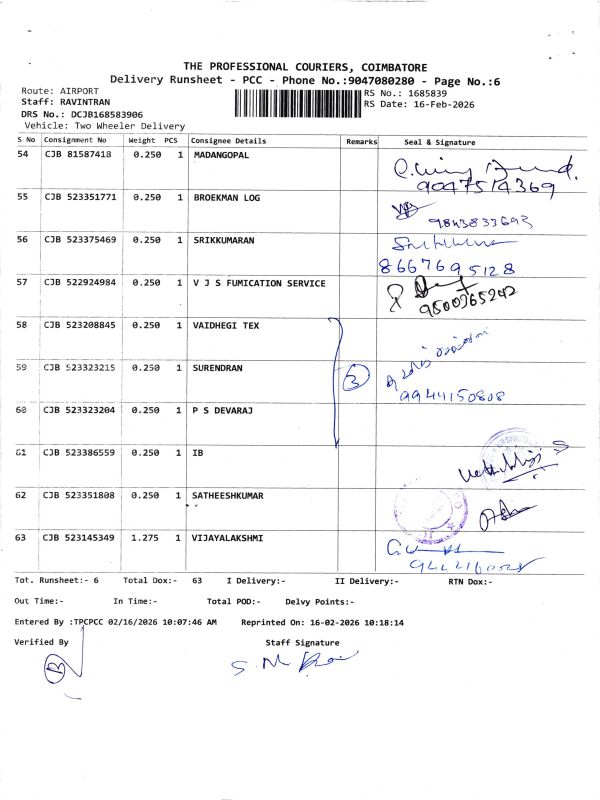 THE PROFESSIONAL COURIERS, COIMBATORE
Delivery Runsheet - PCC - Phone No.:9047080280 - Page No.:6
Route: AIRPORT
Staff: RAVINTRAN
DRS No.: DCJB168583906
Vehicle: Two Wheeler Delivery
RS No.: 1685839
RS Date: 16-Feb-2026
S No Consignment No Weight PCS Consignee Details Remarks Seal & Signature
54 CJB 81587418 0.250 1 MADANGOPAL
9047514369
55 CJB 523351771 0.250 1 BROEKMAN LOG
9843833693
56 CJB 523375469 0.250 1 SRIKKUMARAN
8667695128
57 CJB 522924984 0.250 1 V J S FUMICATION SERVICE
9500365242
58 CJB 523208845 0.250 1 VAIDHEGI TEX
59 CJB 523323215 0.250 1 SURENDRAN 3
9944150808
60 CJB 523323204 0.250 1 P S DEVARAJ
61 CJB 523386559 0.250 1 IB
62 CJB 523351808 0.250 1 SATHEESHKUMAR
63 CJB 523145349 1.275 1 VIJAYALAKSHMI
Tot. Runsheet:- 6 Total Dox:- 63 I Delivery:- II Delivery:- RTN Dox:-
Out Time:- In Time:- Total POD:- Delvy Points:-
Entered By :TPCPCC 02/16/2026 10:07:46 AM Reprinted On: 16-02-2026 10:18:14
Verified By Staff Signature